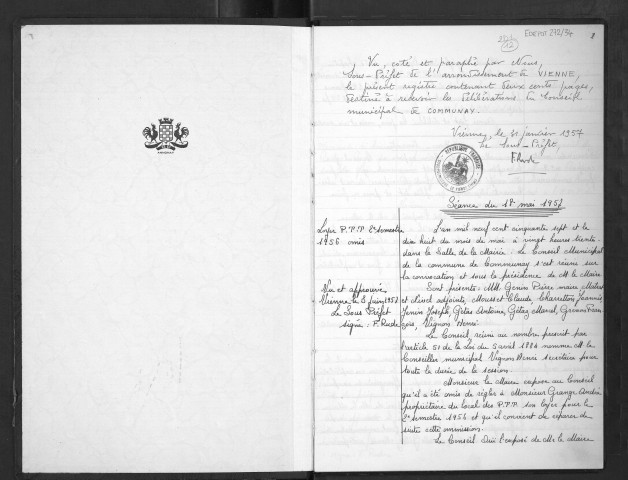 EDEPOT 272/34
Vu, coté et paraphé par Nous,
Sous-Préfet de l'arrondissement de VIENNE,
le présent registre contenant deux cents pages,
destiné à recevoir les délibérations du Conseil
municipal de COMMUNAY.
Vienne, le 31 janvier 1957
Le Sous-Préfet,
REPUBLIQUE FRANCAISE
Séance du 18 mai 1957
Loyer P.T.T. 2e semestre
1956 omis
Vu et approuvé
Vienne le 3 juin 1957
Le Sous Préfet
signé : F. Rude
L'an mil neuf cent cinquante sept et le
dix huit du mois de mai à vingt heures trente
dans la Salle de la Mairie : Le Conseil Municipal
de la commune de Communay s'est réuni sur
la convocation et sous la présidence de M. le Maire
Sont présents : MM. Genin Pierre maire
et adjoints, Mousset Claude, Charreton Joannès,
Genin Joseph, Antoine, Marcel, Fran-
çois, Vignon Henri.
Le Conseil réuni au nombre prescrit par
l'article 51 de la Loi du 5 avril 1884 nomme M. le
Conseiller municipal Vignon Henri secrétaire pour
toute la durée de la session.
Monsieur le Maire expose au Conseil
qu'il a été omis de régler à Monsieur Grange André
propriétaire du local des P.T.T. son loyer pour le
2e semestre 1956 et qu'il convient de réparer de
suite cette ommission.
Le Conseil Ouï l'exposé de Mr le Maire